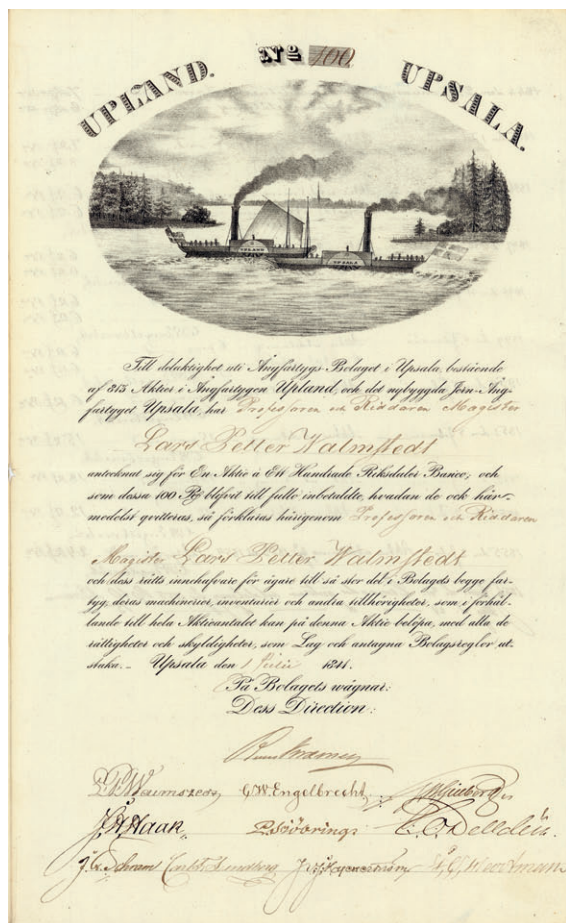 UPLAND. No 400 UPSALA.
UPLAND
UPSALA
Till delaktighet uti Ångfartygs-Bolaget i Upsala, bestående
af 315 Aktier i Ångfartygen Upland, och det nybyggda Jern-Ång-
fartyget Upsala, har Professoren och Riddaren Magister
Lars Petter Walmstedt
antecknat sig för En Aktie à Ett Hundrade Riksdaler Banco, och
som dessa 100 blifvit till fullo inbetaldte, hvadan de ock här-
medelst qvitteras, så förklaras härigenom Professoren och Riddaren
Magister Lars Petter Walmstedt
och dess rätts innehafvare för ägare till så stor del i Bolagets begge far-
tyg, deras machinerier, inventarier och andra tillhörigheter, som i förhål-
lande till hela Aktieantalet kan på denna Aktie belöpa, med alla de
rättigheter och skyldigheter, som Lag och antagna Bolagsregler ut-
staka. Upsala den 1 Julii 1841.
På Bolagets wägnar:
Dess Direction:
G.W. Engelbrecht
J. Haak P. Sjöbring